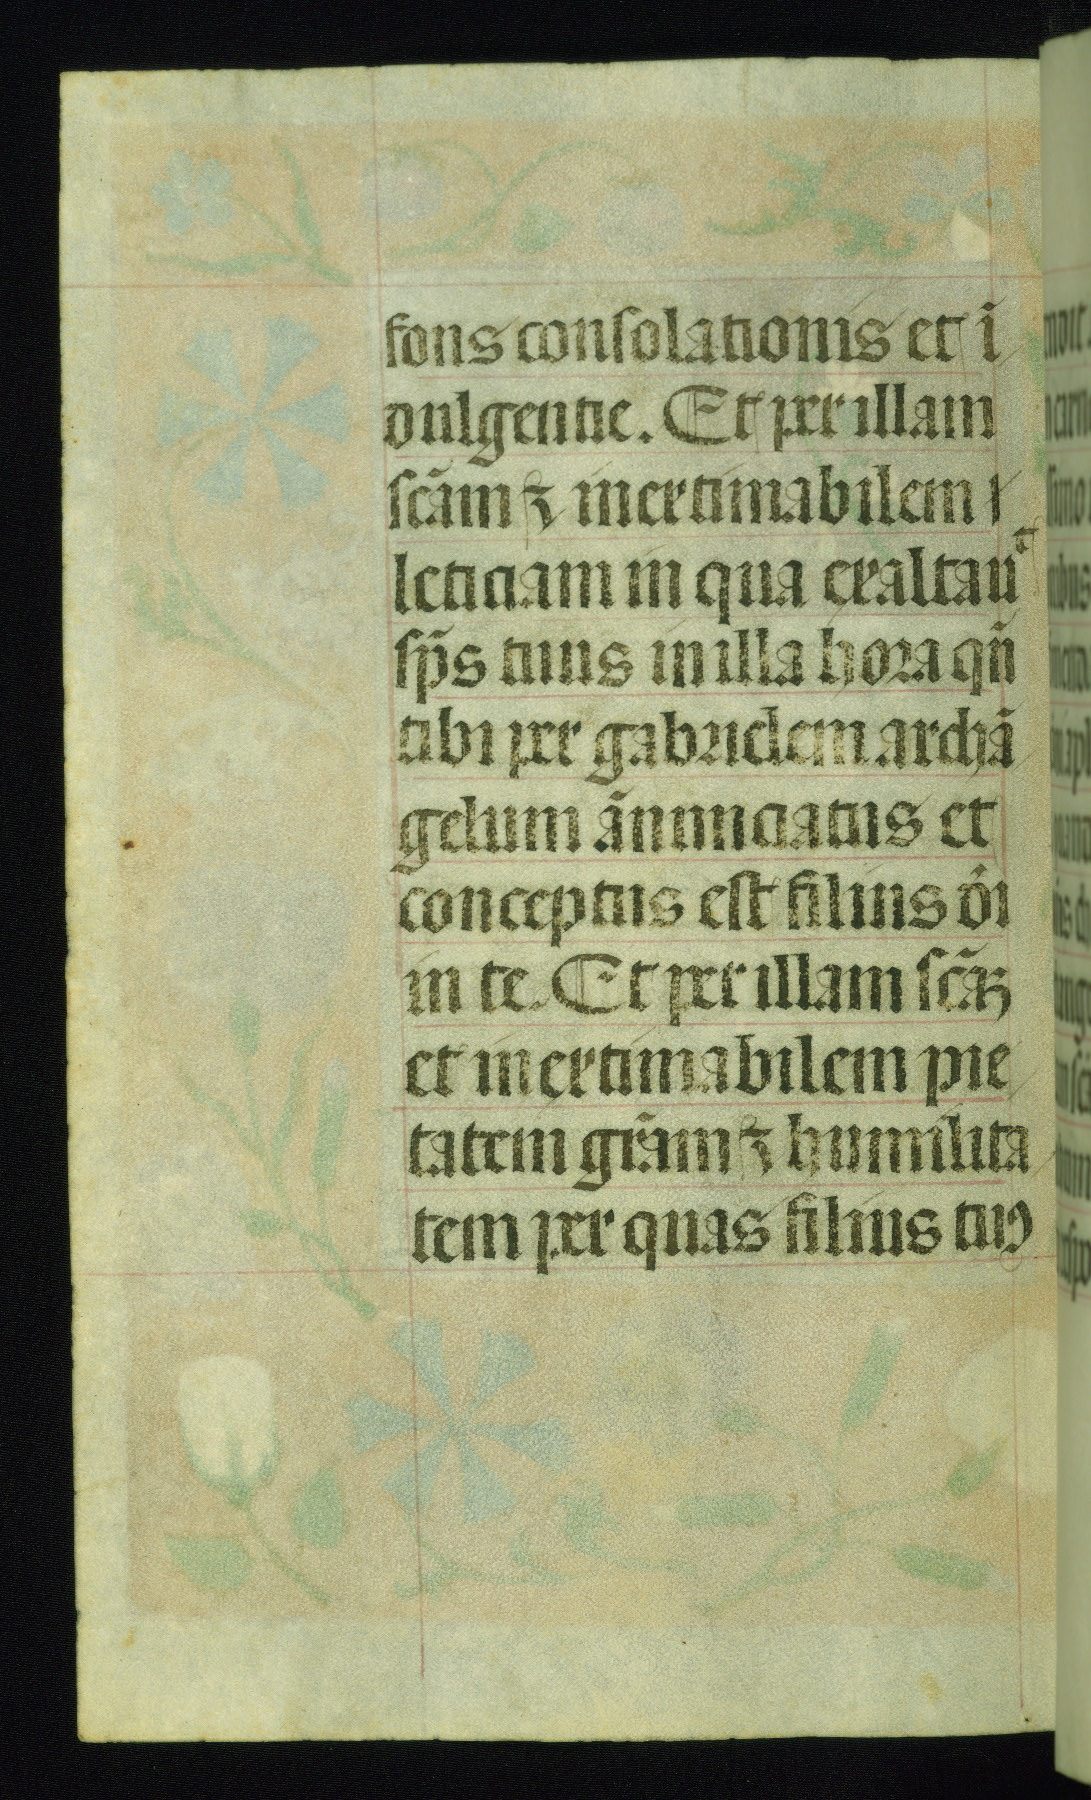 fons consolationis et ī
dulgentie. Et per illam
scām ⁊ inextimabilem l
leticiam in qua exaltauᵗ
sp̄s tuus in illa hora qn̄
tibi per gabrielem archā
gelum ānunciatus et
conceptus est filius di
in te. Et per illam scāꝫ
et inextimabilem pie
tatem grām ⁊ humilita
tem per quas filius tuꝰ